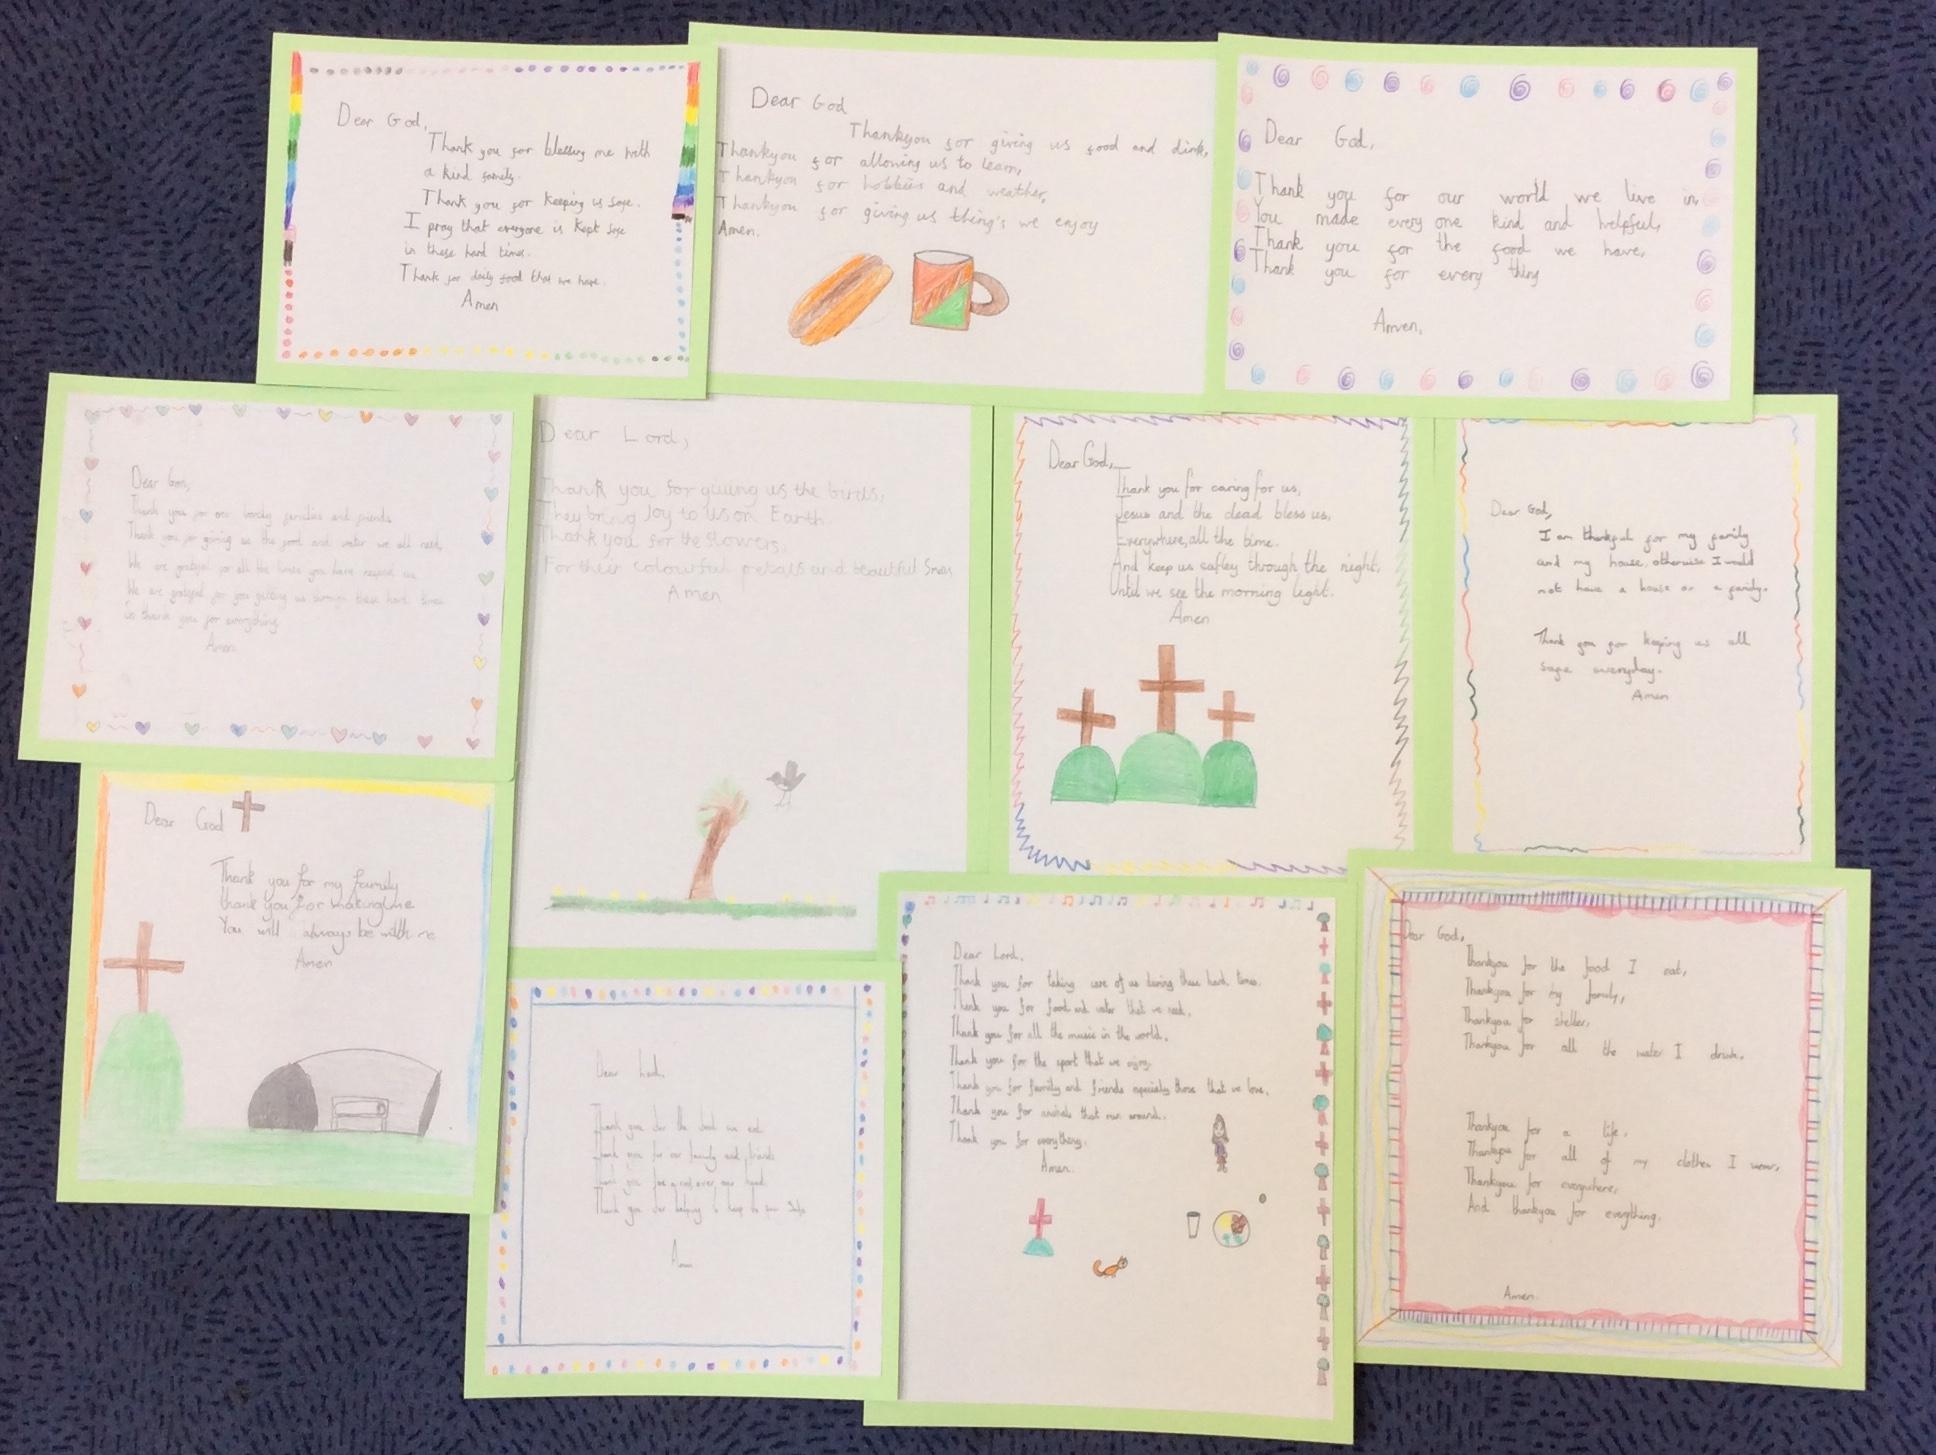 Dear God,
Thank you for blessing me with
a kind family.
Thank you for keeping us safe.
I pray that everyone is kept safe
in these hard times.
Thank for daily food that we have.
Amen
Dear God
Thankyou for giving us food and drink,
Thankyou for allowing us to learn,
Thankyou for hobbies and weather,
Thankyou for giving us thing's we enjoy
Amen.
Dear God,
Thank you for our world we live in,
You made every one kind and helpful,
Thank you for the food we have,
Thank you for every thing
Amen.
Dear God,
Thank you for our lovely families and friends
Thank you for giving us the food and water we all need,
We are grateful for all the times you have helped us
We are grateful for you getting us through these hard times
So thank you for everything
Amen
Dear Lord,
Thank you for giving us the birds,
They bring Joy to us on Earth.
Thank you for the flowers,
For their colourful petals and beautiful
Amen
Dear God,
Thank you for caring for us,
Jesus and the dead bless us,
Everywhere, all the time.
And keep us safley through the night,
Until we see the morning light.
Amen
Dear God,
I am thankful for my family
and my house, otherwise I would
not have a house or a family.
Thank you for keeping us all
safe everyday.
Amen
Dear God
Thank you for my family
thank you for making me
You will always be with me
Amen
Dear Lord,
Thank you for the food we eat
Thank you for our family and friends
Thank you for a roof over our head
Thank you for helping to keep us safe
Amen
Dear Lord,
Thank you for taking care of us during these hard times.
Thank you for food and water that we need.
Thank you for all the music in the world.
Thank you for the sport that we enjoy.
Thank you for family and friends especially those that we love.
Thank you for animals that run around.
Thank you for everything.
Amen.
Dear God,
Thankyou for the food I eat,
Thankyou for my family,
Thankyou for shelter,
Thankyou for all the water I drink.
Thankyou for a life,
Thankyou for all of my clothes I wear,
Thankyou for everywhere,
And thankyou for everything.
Amen.